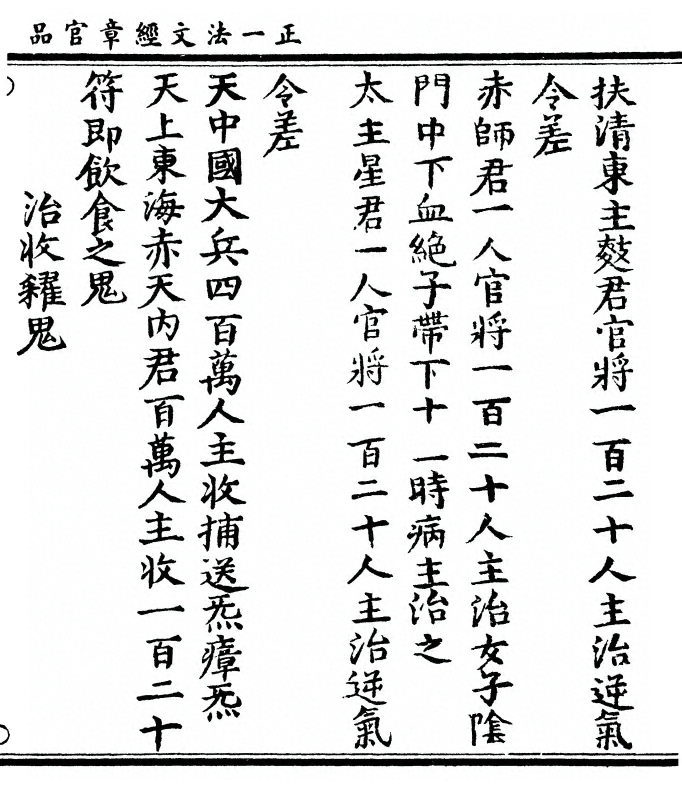 正一法文經章官品
扶清東主敥君官將一百二十人主治逆氣
令差
赤師君一人官將一百二十人主治女子陰
門中下血絕子帶下十一時病主治之
太主星君一人官將一百二十人主治逆氣
令差
天中國大兵四百萬人主收捕送炁瘴炁
天上東海赤天內君百萬人主收一百二十
符即飲食之鬼
治收糴鬼